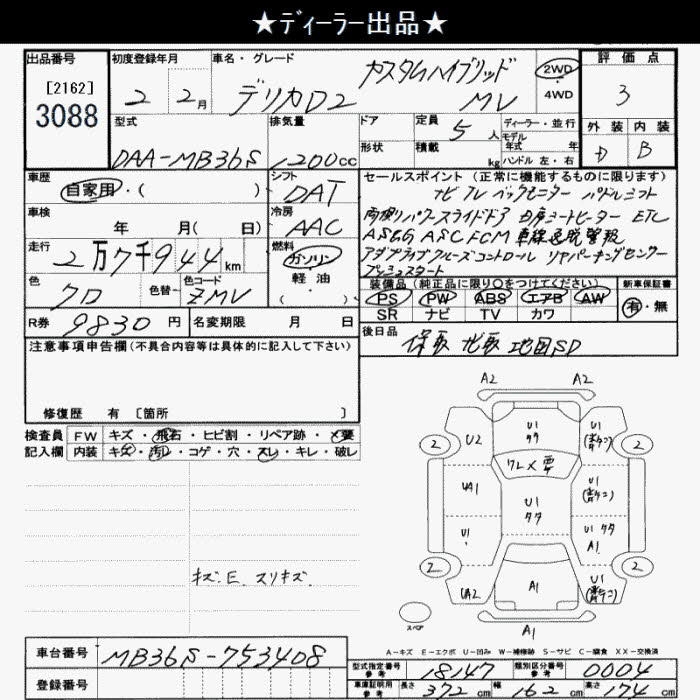 ★ディーラー出品★
出品番号
[2162]
3088
初度登録年月
2 2月
車名・グレード
デリカD2 カスタムハイブリッド MV
2WD
・
4WD
評価点
3
外装 内装
D B
型式
DAA-MB36S
排気量
1200cc
ドア
形状
定員 5人
積載 kg
ディーラー・並行
モデル
年式 年
ハンドル 左・右
車歴
自家用・( )
シフト
DAT
車検
年 月( 日)
冷房
AAC
走行
2万7千944km
燃料
ガソリン
・
軽油
( )
色
クロ
色替
色コード
ZMV
R券 9830円
名変期限 月 日
セールスポイント (正常に機能するものに限ります)
ナビ TV バックモニター パドルシフト
両側パワースライドドア 日席シートヒーター ETC
ASG ASC FCM 車線逸脱警報
アダプティブクルーズコントロール リヤパーキングセンサー
プッシュスタート
装備品 (純正品に限り○をつけてください)
PS PW ABS エアB AW
SR ナビ TV カワ
新車保証書
有・無
後日品
保取 地図SD
注意事項申告欄(不具合内容等は具体的に記入して下さい)
修復歴 有 〔箇所 〕
検査員
記入欄
FW キズ・飛石・ヒビ割・リペア跡・×要
内装 キズ・汚れ・コゲ・穴・スレ・キレ・破レ
キズ.E. スリキズ.
A2 A2
2 U2 U1 タタ U1 2
ワレ×要
UA1 U1 タタ U1
U1 U1 タタ A1
2 UA2 A1 U1 2
スペア
A1
A-キズ E-エクボ U-凹み W-補修跡 S-サビ C-腐食 XX-交換済
車台番号 MB36S-753408
登録番号
型式指定番号
参考
18147
類別区分番号
参考
0004
車庫証明用
参考
長さ 372cm
幅 162cm
高さ 174cm